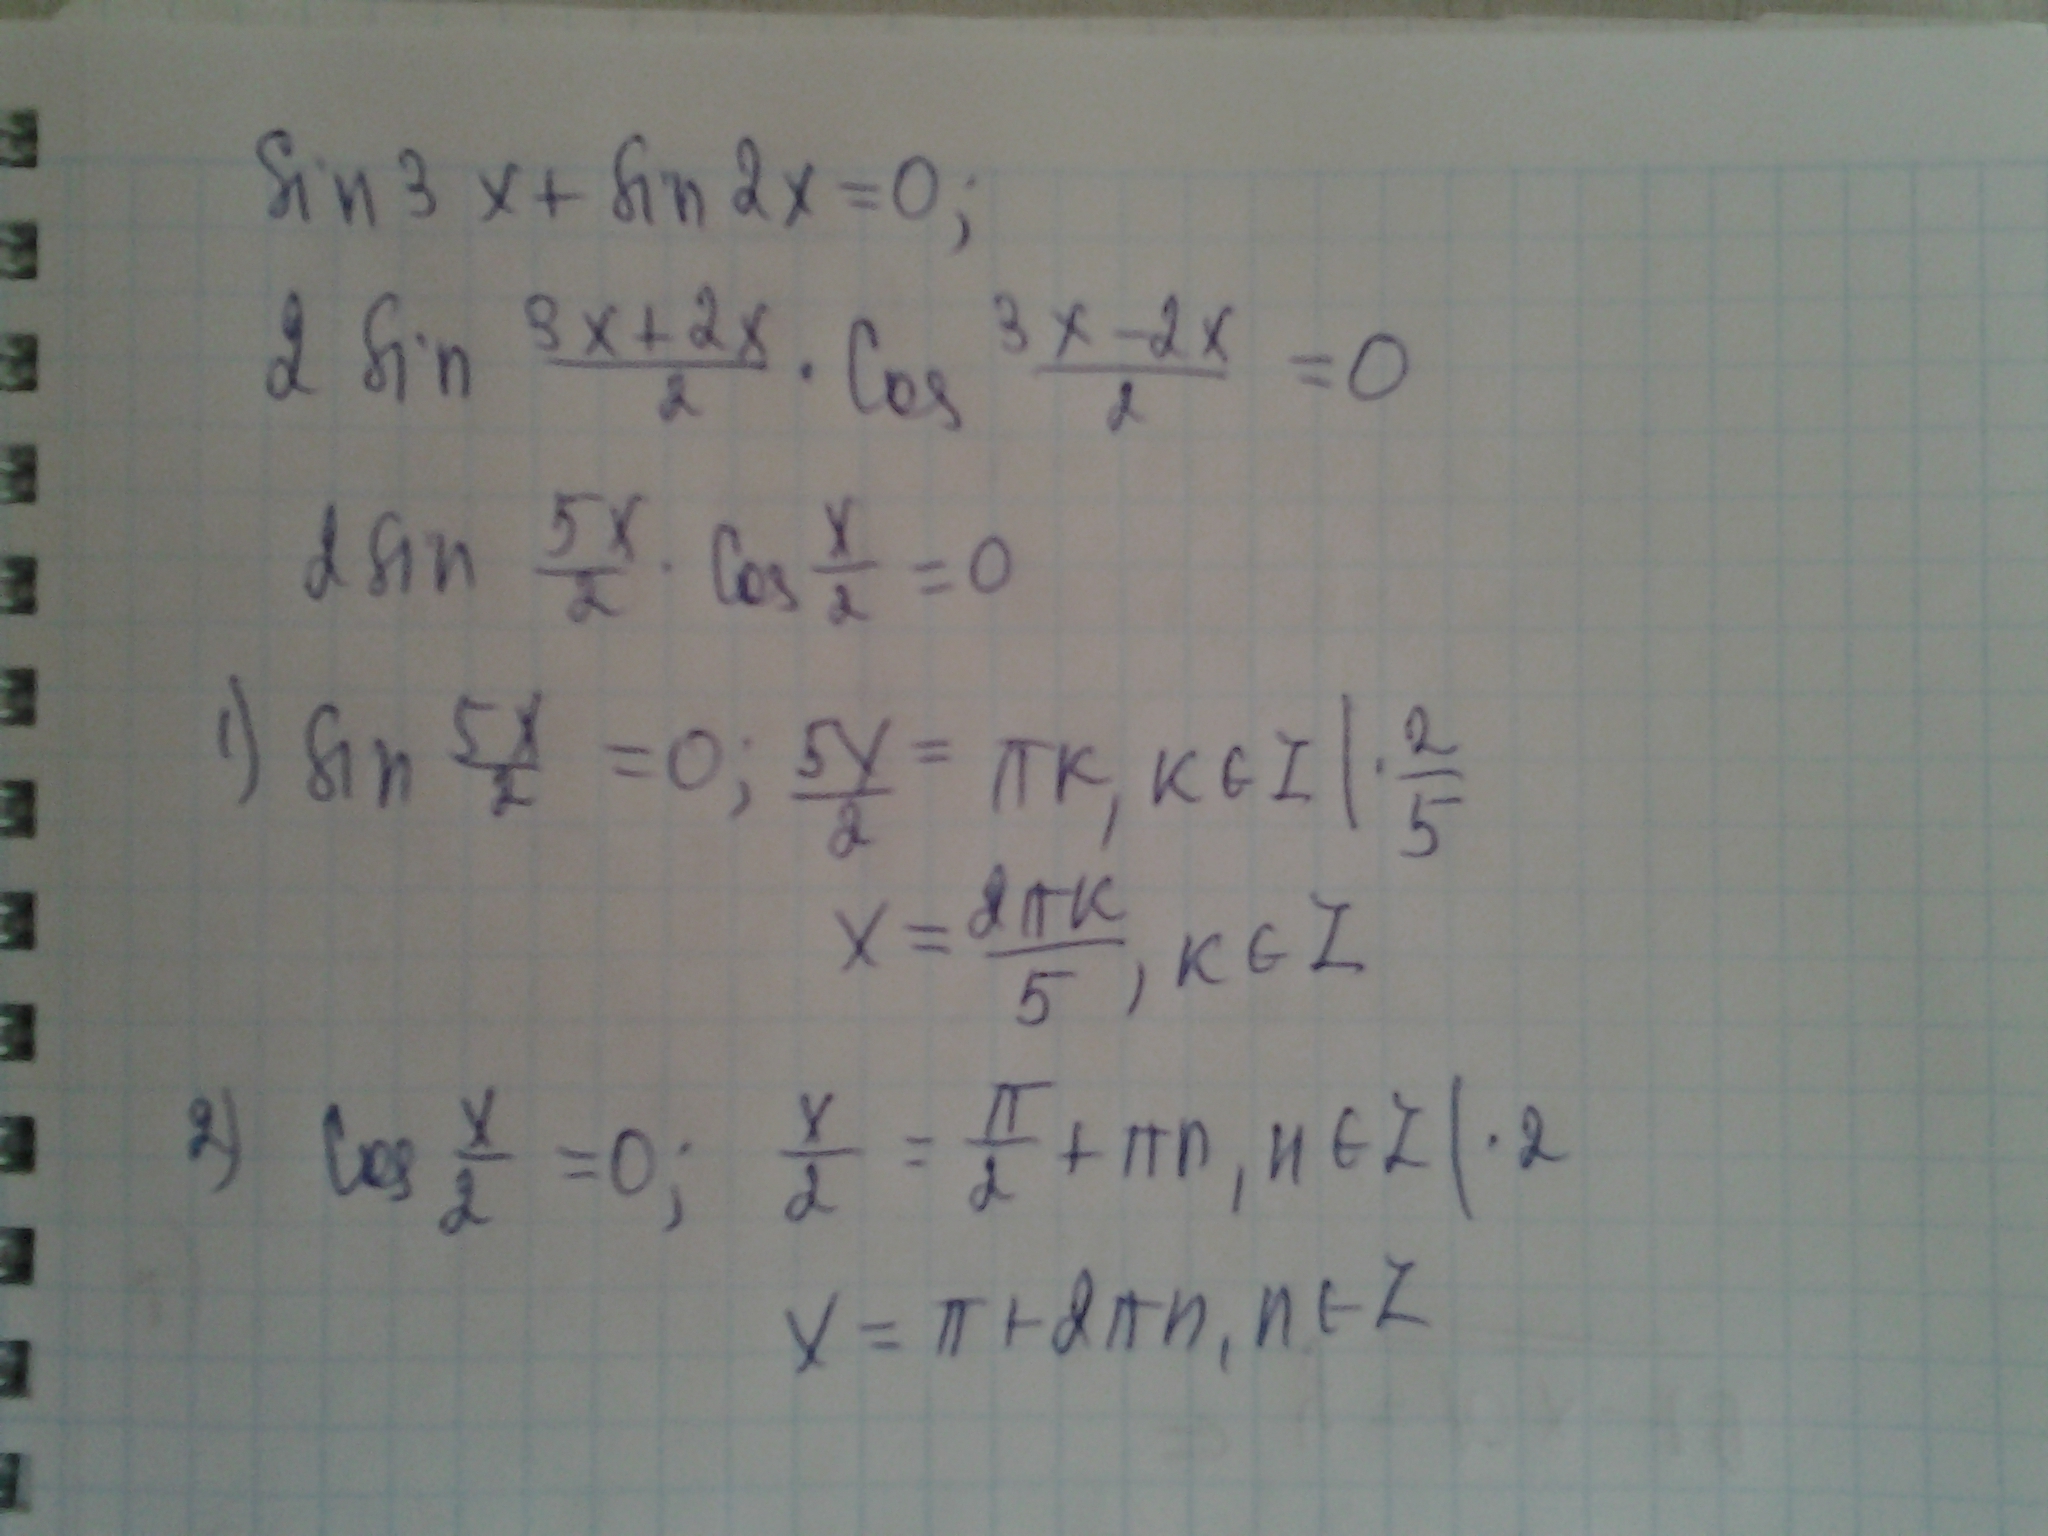 sin 3x + sin 2x = 0;
2 sin (3x + 2x)/2 · cos (3x - 2x)/2 = 0
2 sin 5x/2 · cos x/2 = 0
1) sin 5x/2 = 0; 5x/2 = πк, к ∈ Z | · 2/5
x = 2πк/5, к ∈ Z
2) cos x/2 = 0; x/2 = π/2 + πn, n ∈ Z | · 2
x = π + 2πn, n ∈ Z